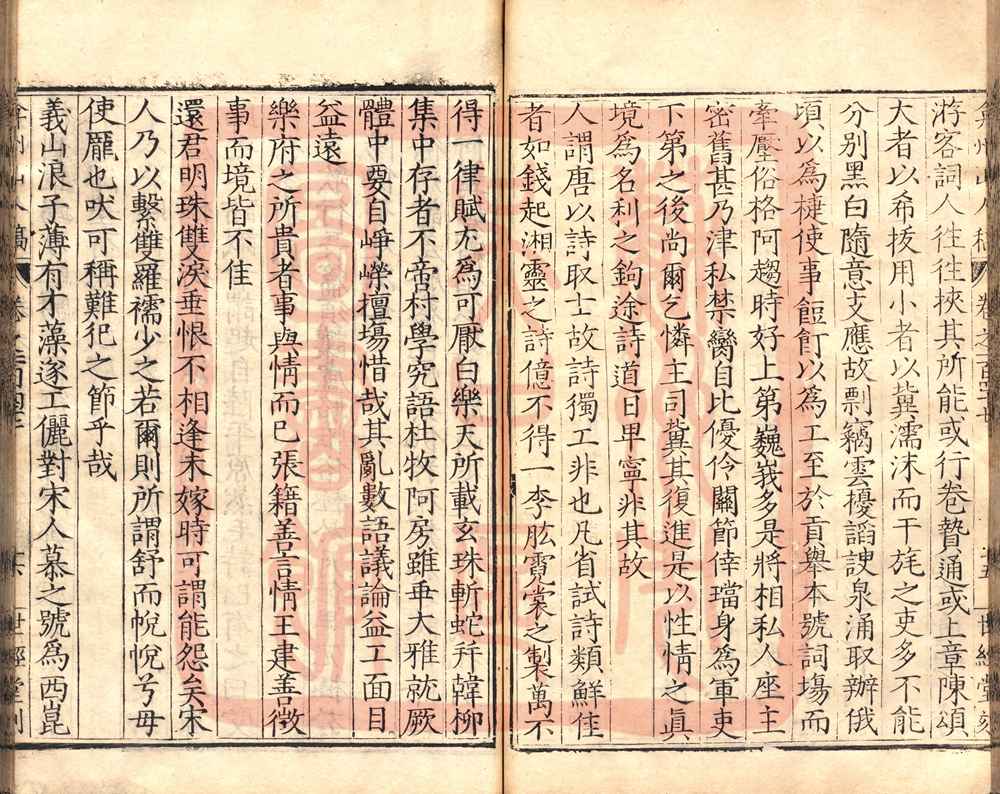 游客詞人往往挾其所能或行卷贄通或上章陳頌
大者以希拔用小者以冀濡沫而干旄之吏多不能
分別黑白隨意支應故剽竊雲擾諂諛泉涌取辦俄
頃以爲捷使事飣餖以爲工至於貢舉本號詞場而
牽壓俗格阿趨時好上第巍峩多是將相私人座主
密舊甚乃津私禁臠自比優伶關節倖璫身爲軍吏
下第之後尚爾乞憐主司冀其復進是以性情之眞
境爲名利之鉤途詩道日卑寧非其故
人謂唐以詩取士故詩獨工非也凡省試詩類鮮佳
者如錢起湘靈之詩億不得一李肱霓裳之製萬不
得一律賦尤爲可厭白樂天所載玄珠斬蛇幷韓柳
集中存者不啻村學究語杜牧阿房雖乖大雅就厥
體中要自崢嶸擅塲惜哉其亂數語議論益工面目
益遠
樂府之所貴者事與情而已張籍善言情王建善徵
事而境皆不佳
還君明珠雙淚垂恨不相逢未嫁時可謂能怨矣宋
人乃以繫雙羅襦少之若爾則所謂舒而帨帨兮毋
使厖也吠可稱難犯之節乎哉
義山浪子薄有才藻遂工儷對宋人慕之號爲西崑